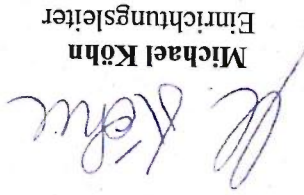 M. Köhn
Michael Köhn
Einrichtungsleiter